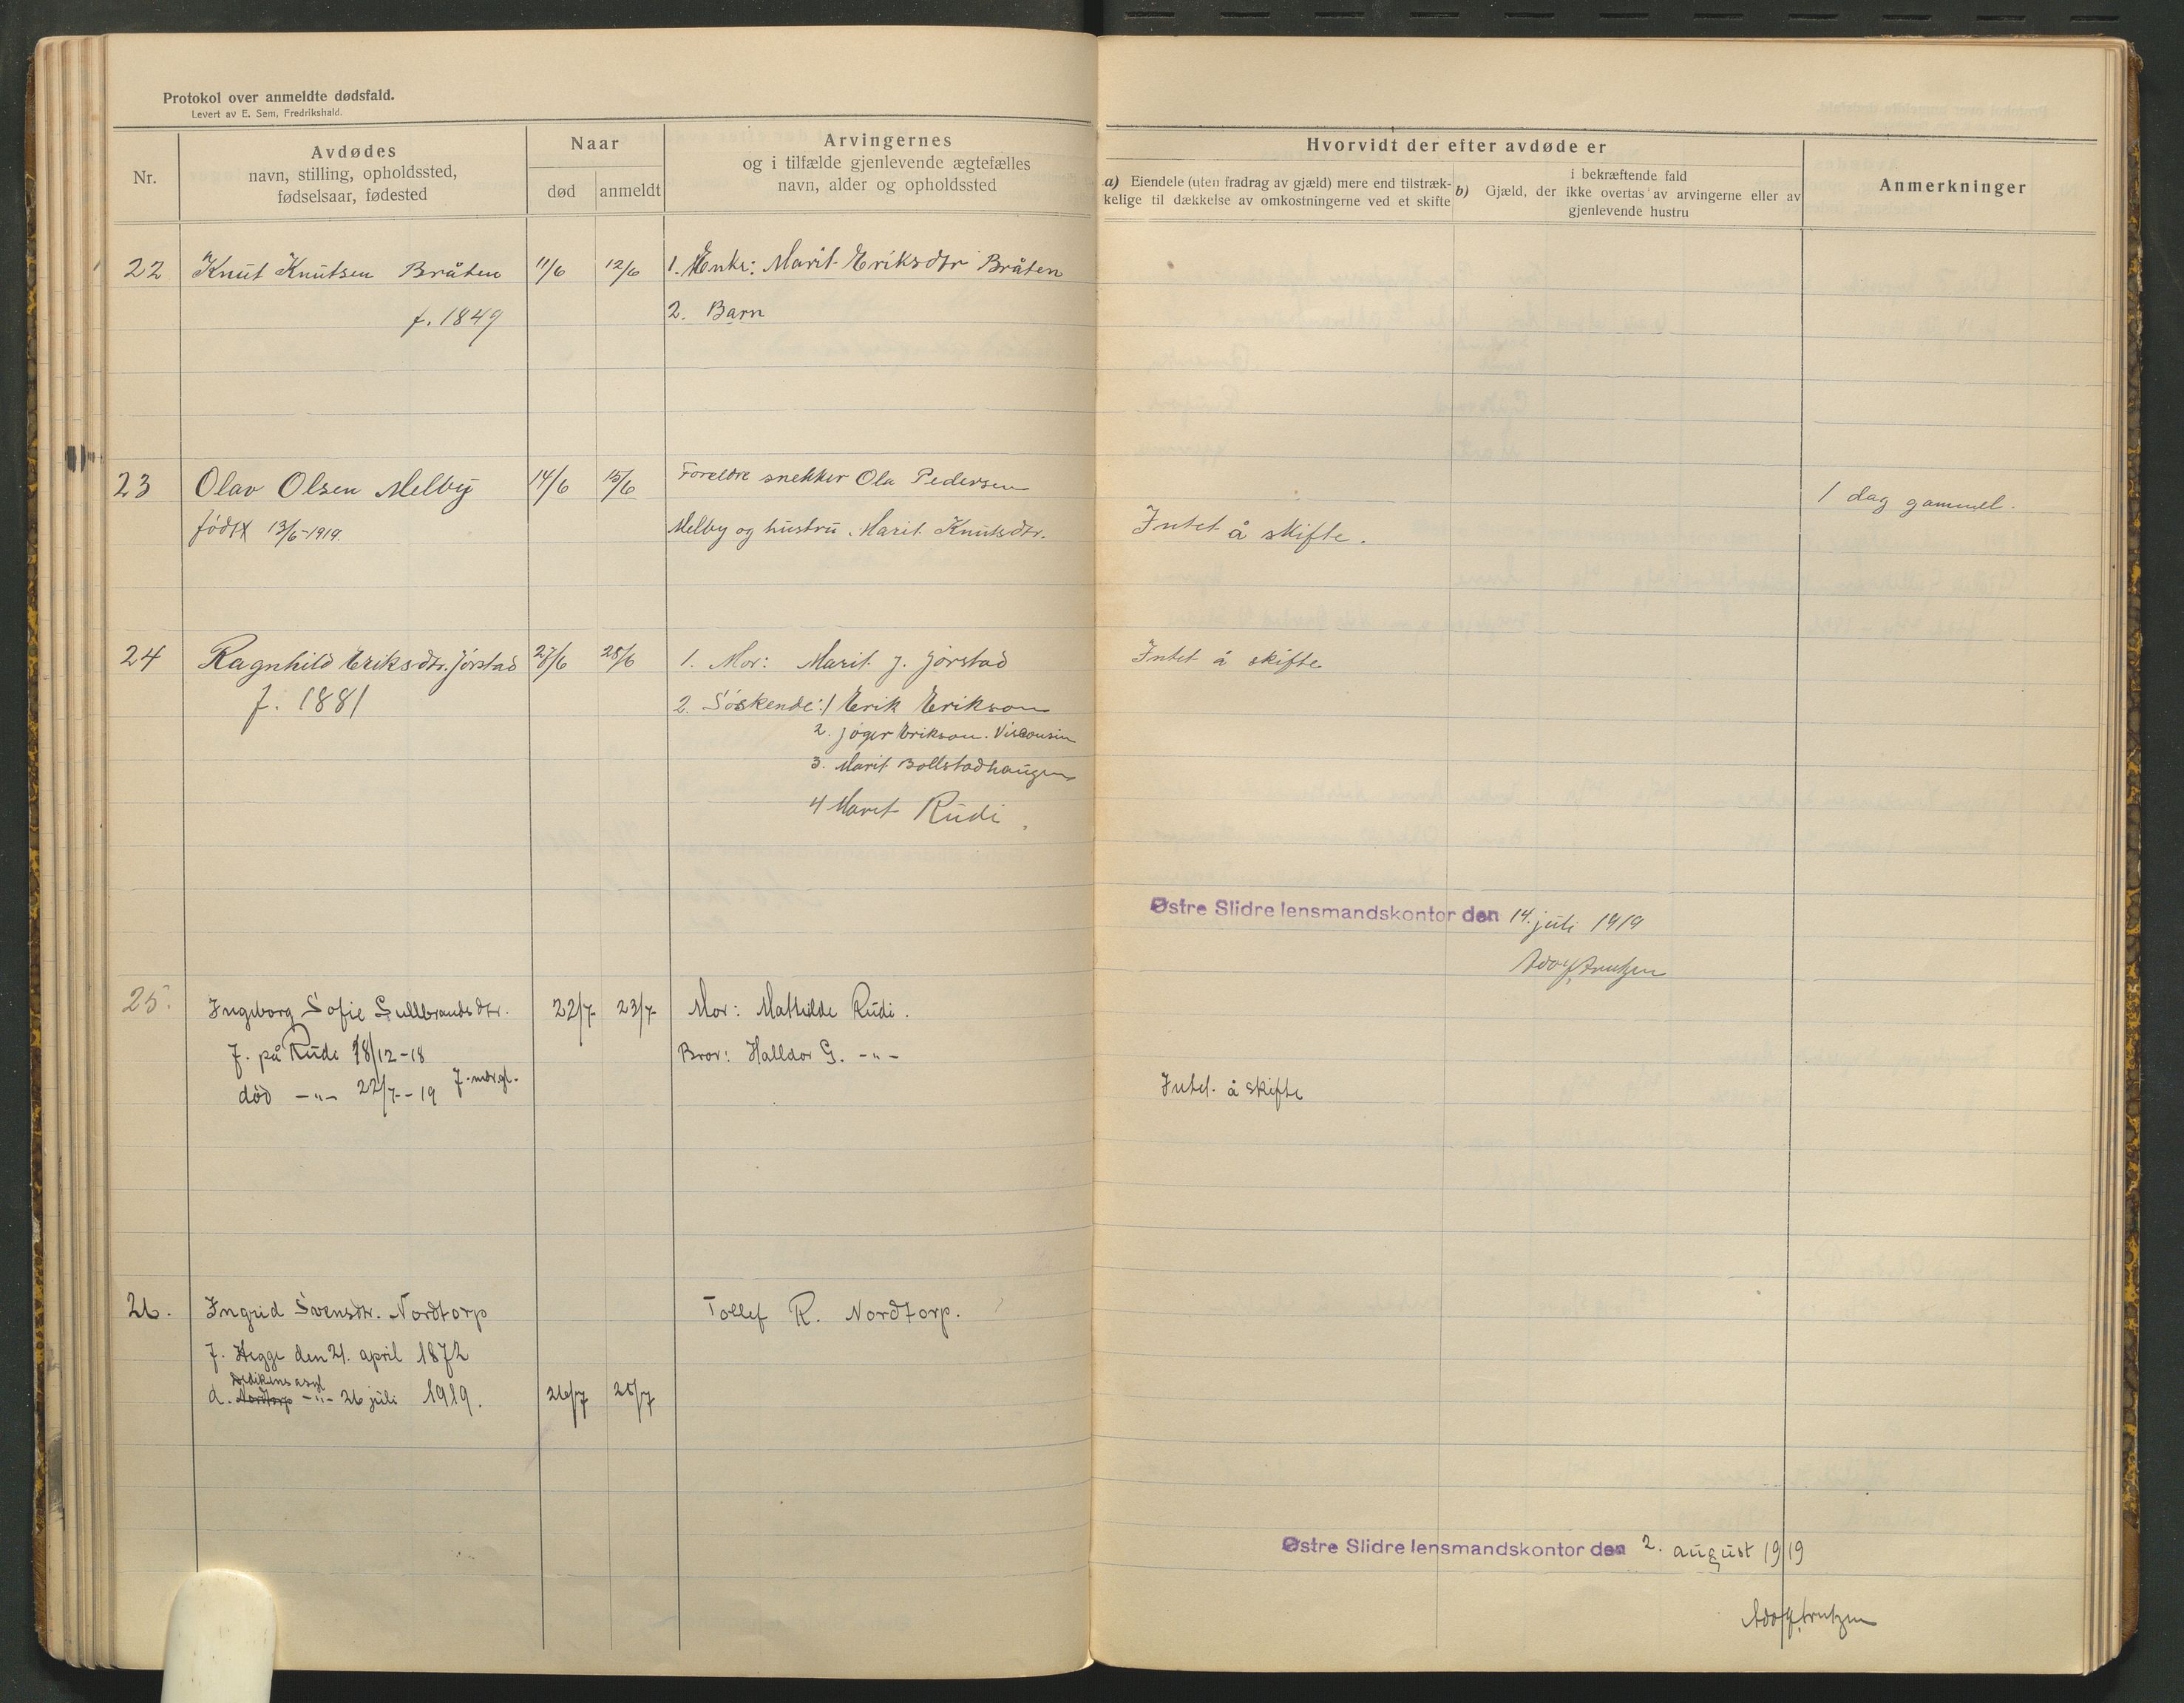 Protokol over anmeldte dødsfald.
Levert av E. Sem, Fredrikshald.
Nr.
Avdødes
navn, stilling, opholdssted,
fødselsaar, fødested
Naar
død
anmeldt
Arvingernes
og i tilfælde gjenlevende ægtefælles
navn, alder og opholdssted
Hvorvidt der efter avdøde er
a) Eiendele (uten fradrag av gjæld) mere end tilstræk-
kelige til dækkelse av omkostningerne ved et skifte
b) Gjæld, der ikke overtas av arvingerne eller av
i bekræftende fald
gjenlevende hustru
Anmerkninger
22 Knut Knutsen Bråten 11/6 12/6 1. Enke: Marit Eriksdtr Bråten
f. 1849 2. Barn
23 Olav Olsen Melby 14/6 15/6 Foreldre snekker Ola Pedersen 1 dag gammel.
født 13/6-1919. Melby og hustru Marit Knutsdtr. Intet å skifte.
24 Ragnhild Eriksdtr. Jørstad 27/6 28/6 1. Mor: Marit J. Jørstad Intet å skifte
f. 1881 2. Søskende: 1 Erik Erikson
2. Jøger Erikson. Visconsin
3. Marit Bollstadhaugen
4 Marit Rudi.
Østre Slidre lensmandskontor den 14. juli 1919
25. Ingeborg Sofie Gullbrandsdtr. 22/7 23/7 Mor: Mathilde Rudi.
f. på Rudi 18/12-18 Bror: Halldor G. -"-
død -"- 22/7-19 7. mdr. gl. Intet å skifte
26. Ingrid Svensdtr. Nordtorp Tollef R. Nordtorp.
f. Hegge den 21. april 1872
asyl
d. Nordtorp -"- 26 juli 1919. 26/7 28/7
Østre Slidre lensmandskontor den 2. august 1919